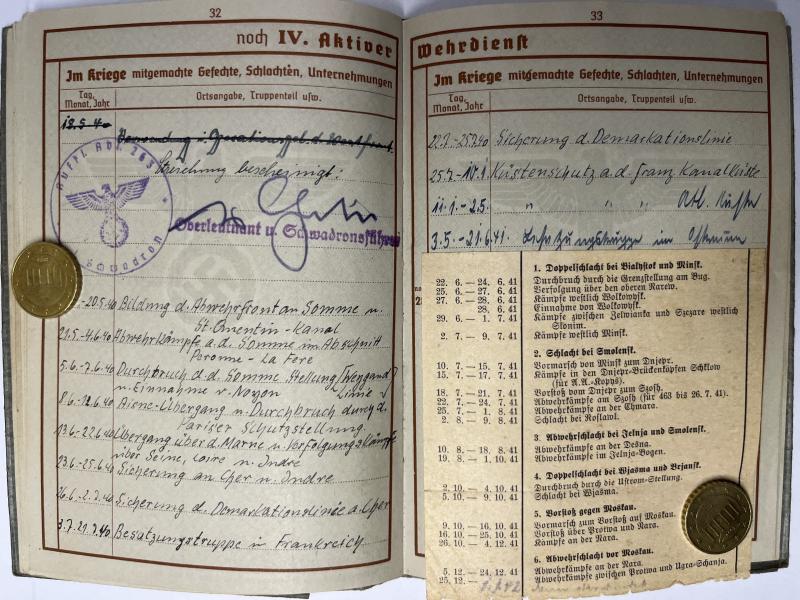 32
noch IV. Aktiver
Im Kriege mitgemachte Gefechte, Schlachten, Unternehmungen
Tag, Monat, Jahr
Ortsangabe, Truppenteil usw.
18.5.40
Verwendung i. Operationsgeb. d. Westfront
Streichung bescheinigt:
Aufkl. Abt. 263
Schwadron
Oberleutnant u. Schwadronsführer
-20.5.40 Bildung d. Abwehrfront an Somme u.
St. Quentin-Kanal
21.5.-4.6.40 Abwehrkämpfe a.d. Somme im Abschnitt
Peronne - La Fere
5.6.-7.6.40 Durchbruch d.d. Somme Stellung (Weygand
u. Einnahme v. Noyon Linie)
8.6.-12.6.40 Aisne-Übergang u. Durchbruch durch d.
Pariser Schutzstellung.
13.6.-22.6.40 Übergang über d. Marne u. Verfolgungskämpfe
über Seine, Loire u. Indre
23.6.-25.6.40 Sicherung an Cher u. Indre
26.6.-2.7.40 Sicherung d. Demarkationslinie a. Cher
3.7.-21.7.40 Besatzungstruppe in Frankreich
33
Wehrdienst
Im Kriege mitgemachte Gefechte, Schlachten, Unternehmungen
Tag, Monat, Jahr
Ortsangabe, Truppenteil usw.
22.7.-25.7.40 Sicherung d. Demarkationslinie
25.7.-10.1. Küstenschutz a.d. franz. Kanalküste
11.1.-2.5. " " " " Atl. Küste
3.5.-21.6.41. Besatzungstruppe im
1. Doppelschlacht bei Bialystok und Minsk.
22. 6. — 24. 6. 41 Durchbruch durch die Grenzstellung am Bug.
25. 6. — 27. 6. 41 Verfolgung über den oberen Narew.
27. 6. — 28. 6. 41 Kämpfe westlich Wolkowysk.
28. 6. 41 Einnahme von Wolkowysk.
29. 6. — 1. 7. 41 Kämpfe zwischen Zelwianka und Szczare westlich
Slonim.
2. 7. — 9. 7. 41 Kämpfe westlich Minsk.
2. Schlacht bei Smolensk.
10. 7. — 15. 7. 41 Vormarsch von Minsk zum Dnjepr.
15. 7. — 17. 7. 41 Kämpfe in den Dnjepr-Brückenköpfen Schklow
(für A.A.-Kopys).
18. 7. — 21. 7. 41 Vorstoß vom Dnjepr zum Szosh.
22. 7. — 24. 7. 41 Abwehrkämpfe am Szosh (für 463 bis 26. 7. 41).
25. 7. — 1. 8. 41 Abwehrkämpfe an der Chmara.
2. 8. — 9. 8. 41 Schlacht bei Roslawl.
3. Abwehrschlacht bei Jelnja und Smolensk.
10. 8. — 18. 8. 41 Abwehrkämpfe an der Desna.
19. 8. — 1. 10. 41 Abwehrkämpfe im Jelnja-Bogen.
4. Doppelschlacht bei Wjasma und Brjansk.
2. 10. — 4. 10. 41 Durchbruch durch die Ustrom-Stellung.
5. 10. — 9. 10. 41 Schlacht bei Wjasma.
5. Vorstoß gegen Moskau.
9. 10. — 16. 10. 41 Vormarsch zum Vorstoß auf Moskau.
16. 10. — 25. 10. 41 Vorstoß über Protwa und Nara.
26. 10. — 4. 12. 41 Kämpfe an der Nara.
6. Abwehrschlacht vor Moskau.
5. 12. — 24. 12. 41 Abwehrkämpfe an der Nara.
25. 12. — Abwehrkämpfe zwischen Protwa und Ugra-Schanja.